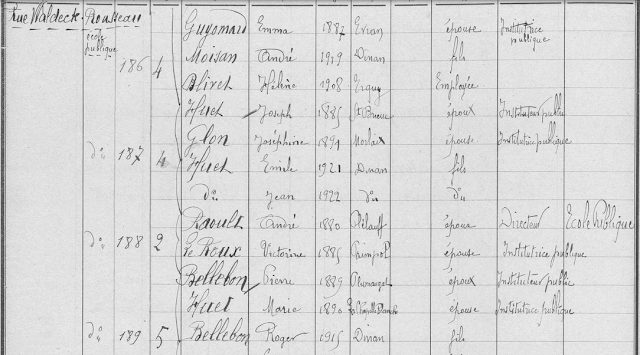 Rue Waldeck Rousseau
école publique
Guyomard Emma 1887 Evran épouse Institutrice publique
186 4 Moisan André 1919 Dinan fils
Blivet Hélène 1908 Erquy Employée
Huet Joseph 1885 St Brieuc époux Instituteur public
Glon Joséphine 1891 Morlaix épouse Institutrice publique
do 187 4 Huet Emile 1921 Dinan fils
do Jean 1922 do do
Raoult André 1880 époux Directeur Ecole Publique
do 188 2 Le Roux Victorine 1885 Paimpol épouse Institutrice publique
Bellebon Pierre 1889 époux Instituteur public
Huet Marie 1890 La Chapelle Blanche épouse Institutrice publique
do 189 5 Bellebon Roger 1915 Dinan fils